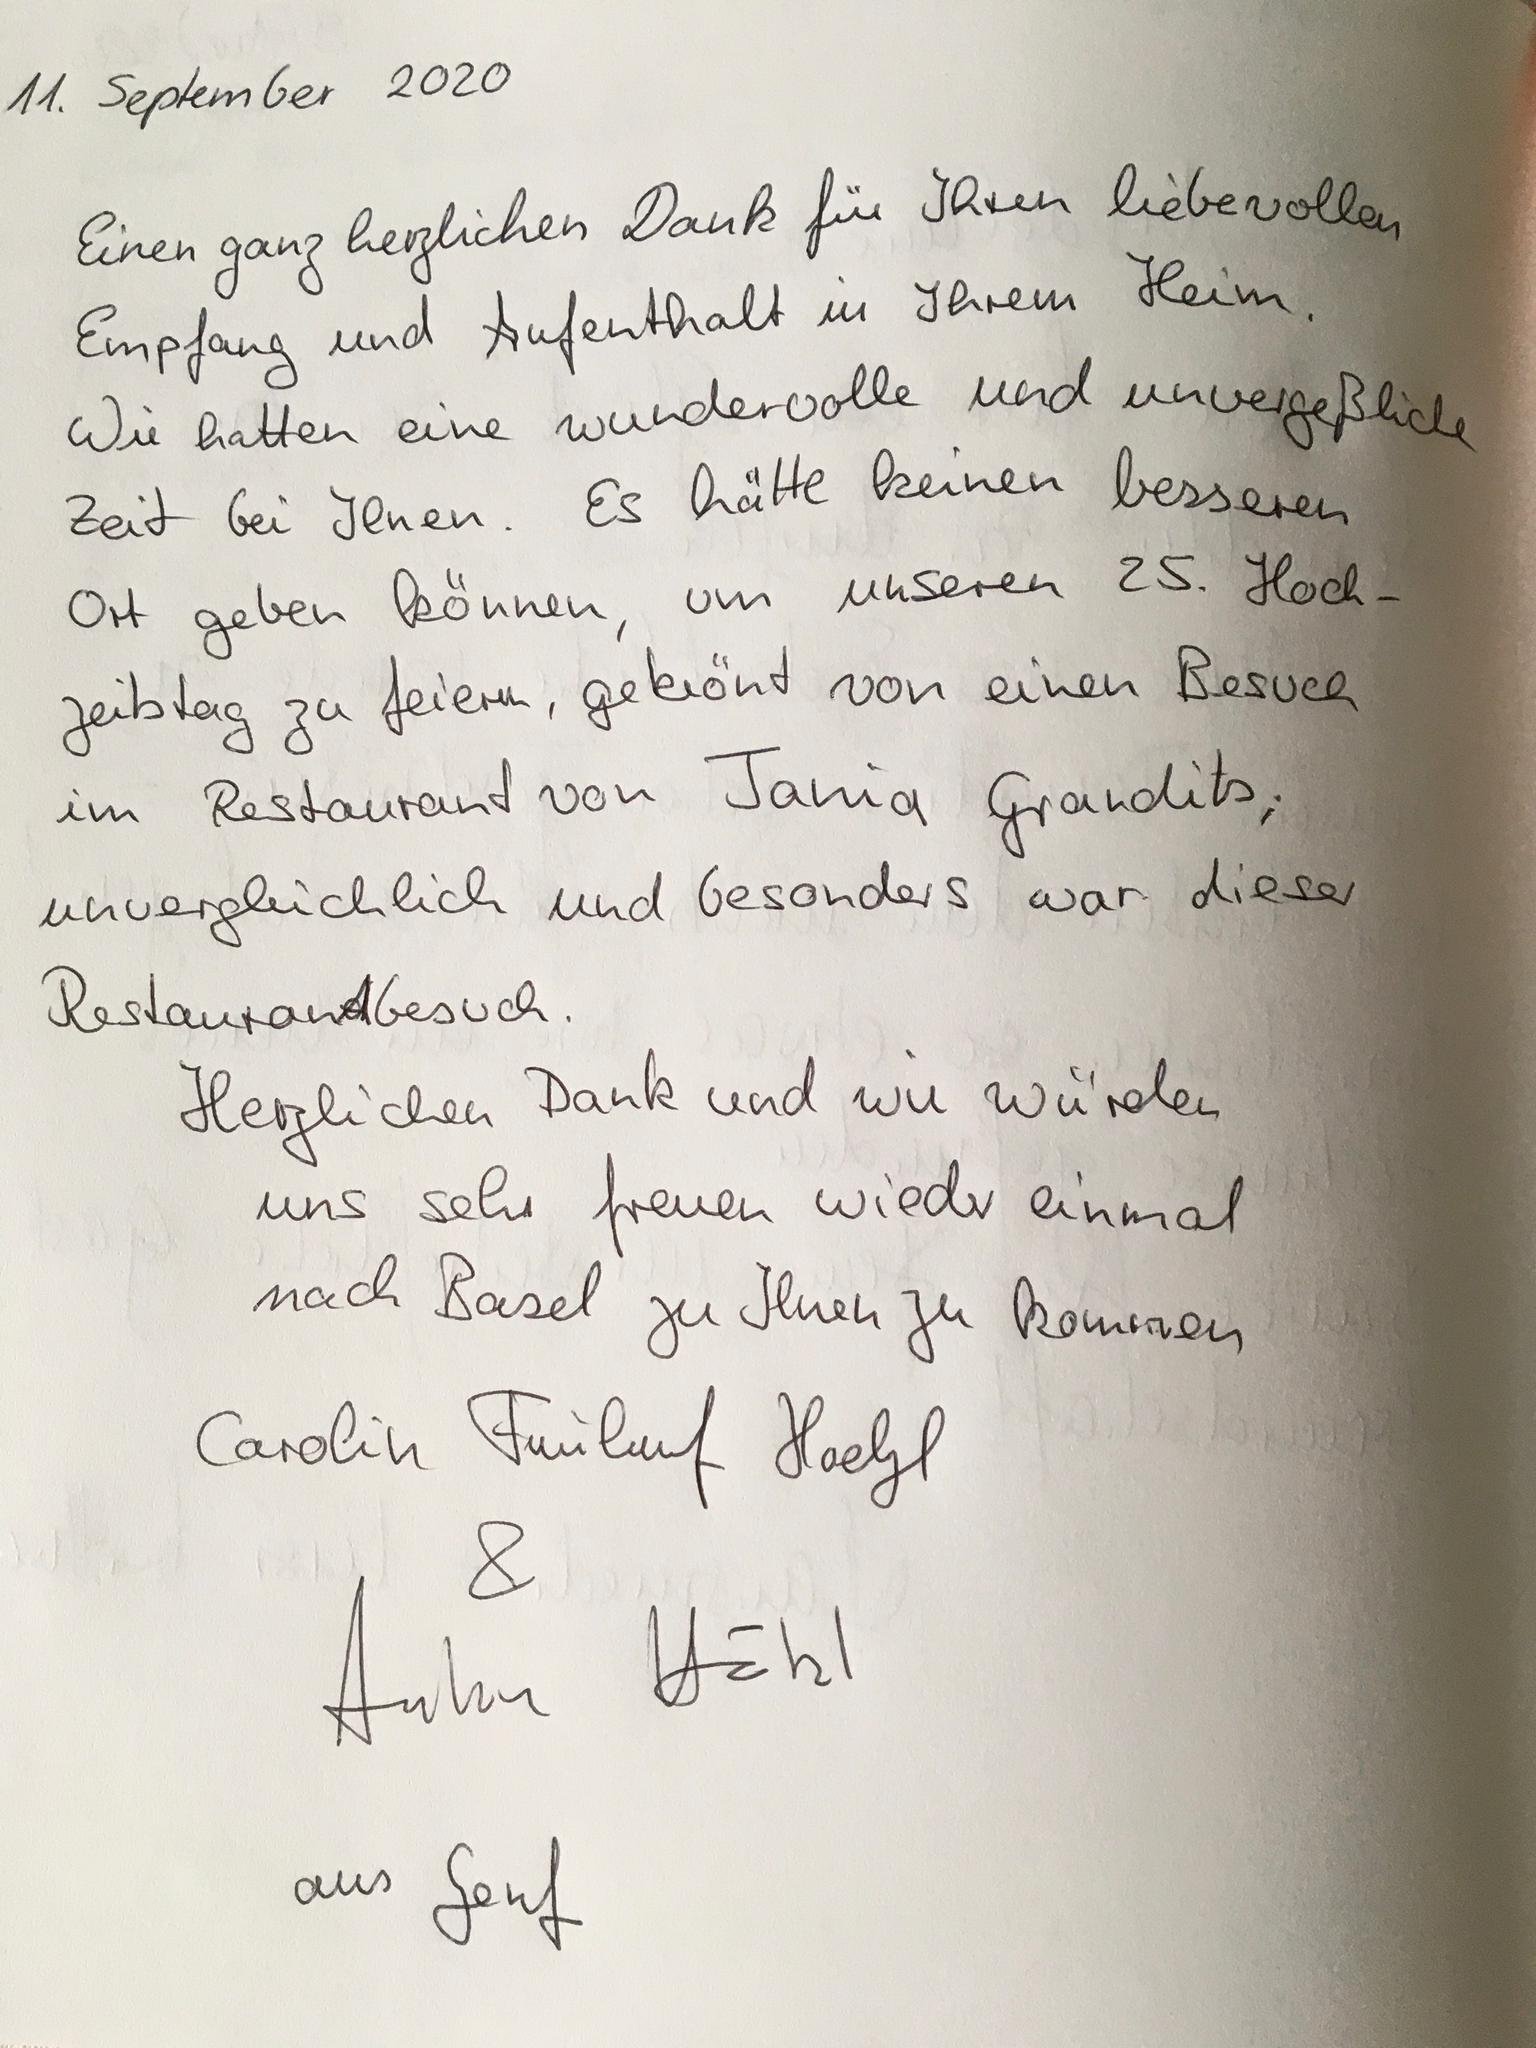 11. September 2020
Einen ganz herzlichen Dank für Ihren liebevollen
Empfang und Aufenthalt in Ihrem Heim.
Wir hatten eine wundervolle und unvergeßliche
Zeit bei Ihnen. Es hätte keinen besseren
Ort geben können, um unseren 25. Hoch-
zeitstag zu feiern, gekrönt von einen Besuch
im Restaurant von Tania Grandits;
unvergleichlich und besonders war dieser
Restaurantbesuch.
Herzlichen Dank und wir würden
uns sehr freuen wieder einmal
nach Basel zu Ihnen zu kommen
Carolin
&
aus Genf